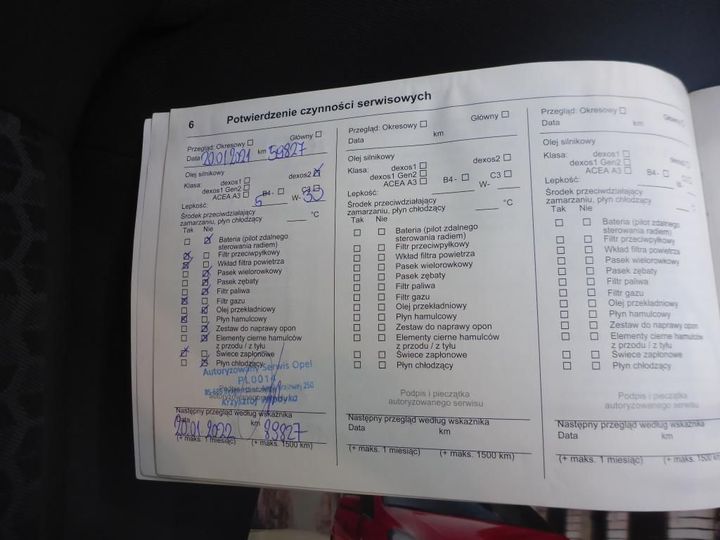 6 Potwierdzenie czynności serwisowych
Przegląd: Okresowy Główny
Data 20.01.2021 km 59827
Olej silnikowy
Klasa: dexos1 dexos2
dexos1 Gen2
ACEA A3 B4- C3
Lepkość: 5 W- 30
Środek przeciwdziałający
zamarzaniu, płyn chłodzący °C
Tak Nie
Bateria (pilot zdalnego
sterowania radiem)
Filtr przeciwpyłkowy
Wkład filtra powietrza
Pasek wielorowkowy
Pasek zębaty
Filtr paliwa
Filtr gazu
Olej przekładniowy
Płyn hamulcowy
Zestaw do naprawy opon
Elementy cierne hamulców
z przodu / z tyłu
Świece zapłonowe
Płyn chłodzący
Autoryzowany Serwis Opel
PL0014
Krzysztof
Następny przegląd według wskaźnika
Data km
20.01.2022 89827
(+ maks. 1 miesiąc) (+ maks. 1500 km)
Przegląd: Okresowy Główny
Data km
Olej silnikowy
Klasa: dexos1 dexos2
dexos1 Gen2
ACEA A3 B4- C3
Lepkość: W-
Środek przeciwdziałający
zamarzaniu, płyn chłodzący °C
Tak Nie
Bateria (pilot zdalnego
sterowania radiem)
Filtr przeciwpyłkowy
Wkład filtra powietrza
Pasek wielorowkowy
Pasek zębaty
Filtr paliwa
Filtr gazu
Olej przekładniowy
Płyn hamulcowy
Zestaw do naprawy opon
Elementy cierne hamulców
z przodu / z tyłu
Świece zapłonowe
Płyn chłodzący
Podpis i pieczątka
autoryzowanego serwisu
Następny przegląd według wskaźnika
Data km
(+ maks. 1 miesiąc) (+ maks. 1500 km)
Przegląd: Okresowy
Data km
Olej silnikowy
Klasa: dexos1
dexos1 Gen2
ACEA A3 B4-
Lepkość: W-
Środek przeciwdziałający
zamarzaniu, płyn chłodzący
Tak Nie
Bateria (pilot zdalnego
sterowania radiem)
Filtr przeciwpyłkowy
Wkład filtra powietrza
Pasek wielorowkowy
Pasek zębaty
Filtr paliwa
Filtr gazu
Olej przekładniowy
Płyn hamulcowy
Zestaw do naprawy opon
Elementy cierne hamulców
z przodu / z tyłu
Świece zapłonowe
Płyn chłodzący
Podpis i pieczątka
autoryzowanego serwisu
Następny przegląd według wskaźnika
Data km
(+ maks. 1 miesiąc) (+ maks. 1500